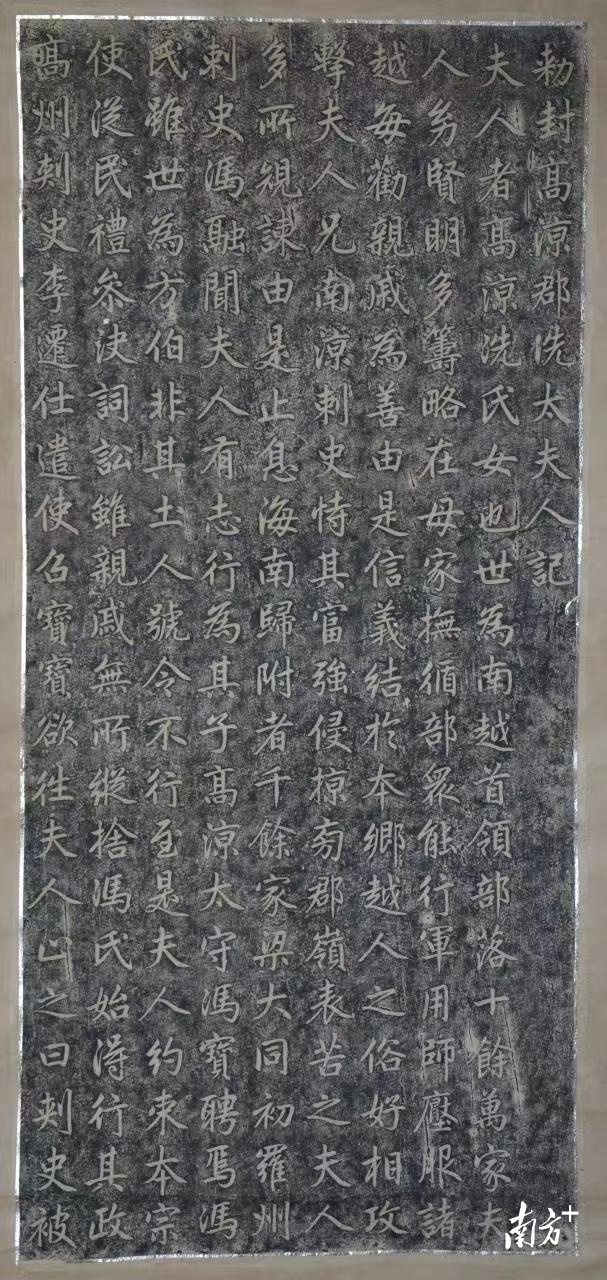 勅封高涼郡洗太夫人記
夫人者高涼洗氏女也世為南越首領部落十餘萬家夫
人幼賢明多籌略在母家撫循部眾能行軍用師壓服諸
越每勸親戚為善由是信義結於本鄉越人之俗好相攻
擊夫人兄南涼刺史恃其富強侵掠旁郡嶺表苦之夫人
多所規諫由是止息海南歸附者千餘家梁大同初羅州
刺史馮融聞夫人有志行為其子高涼太守馮寶聘焉馮
民雖世為方伯非其土人號令不行至是夫人約束本宗
使從民禮參決詞訟雖親戚無所縱捨馮氏始得行其政
高州刺史李遷仕遣使召寶寶欲往夫人止之曰刺史被
南方+